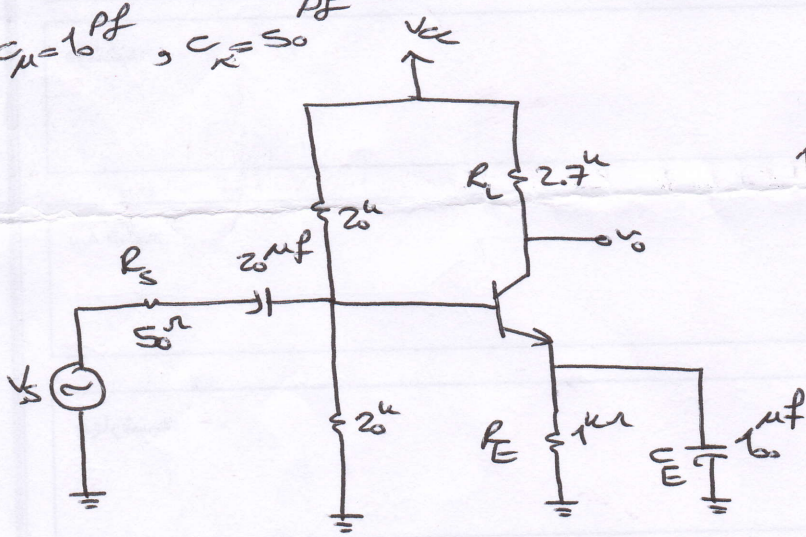 Cμ=10 pf , Cπ=50 pf
Vcc
RL 2.7k
20k
vo
Rs
50Ω
20 μf
Vs
20k
RE 1kΩ
CE 100 μf